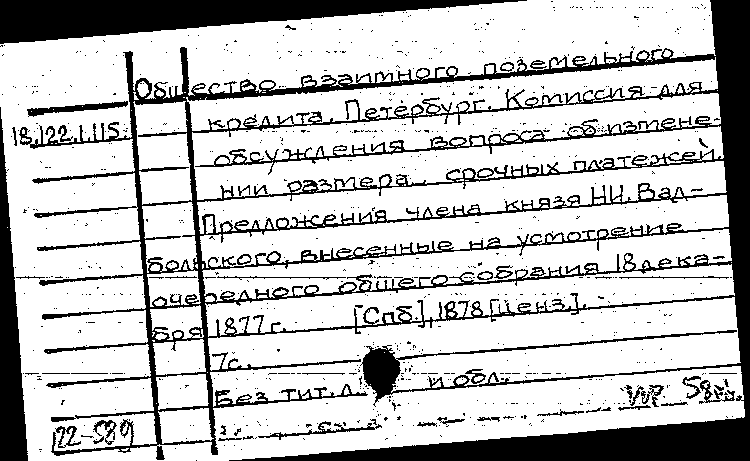 Общество взаимного поземельного
18.122.1.115. кредита. Петербург. Комиссия для
обсуждения вопроса об измене-
нии размера срочных платежей.
Предложения члена князя Н.И. Вад-
больского, внесенные на усмотрение
очередного общего собрания 18 дека-
бря 1877 г. [Спб.], 1878 [ценз.].
7 с.
Без тит. л. и обл.
122-589